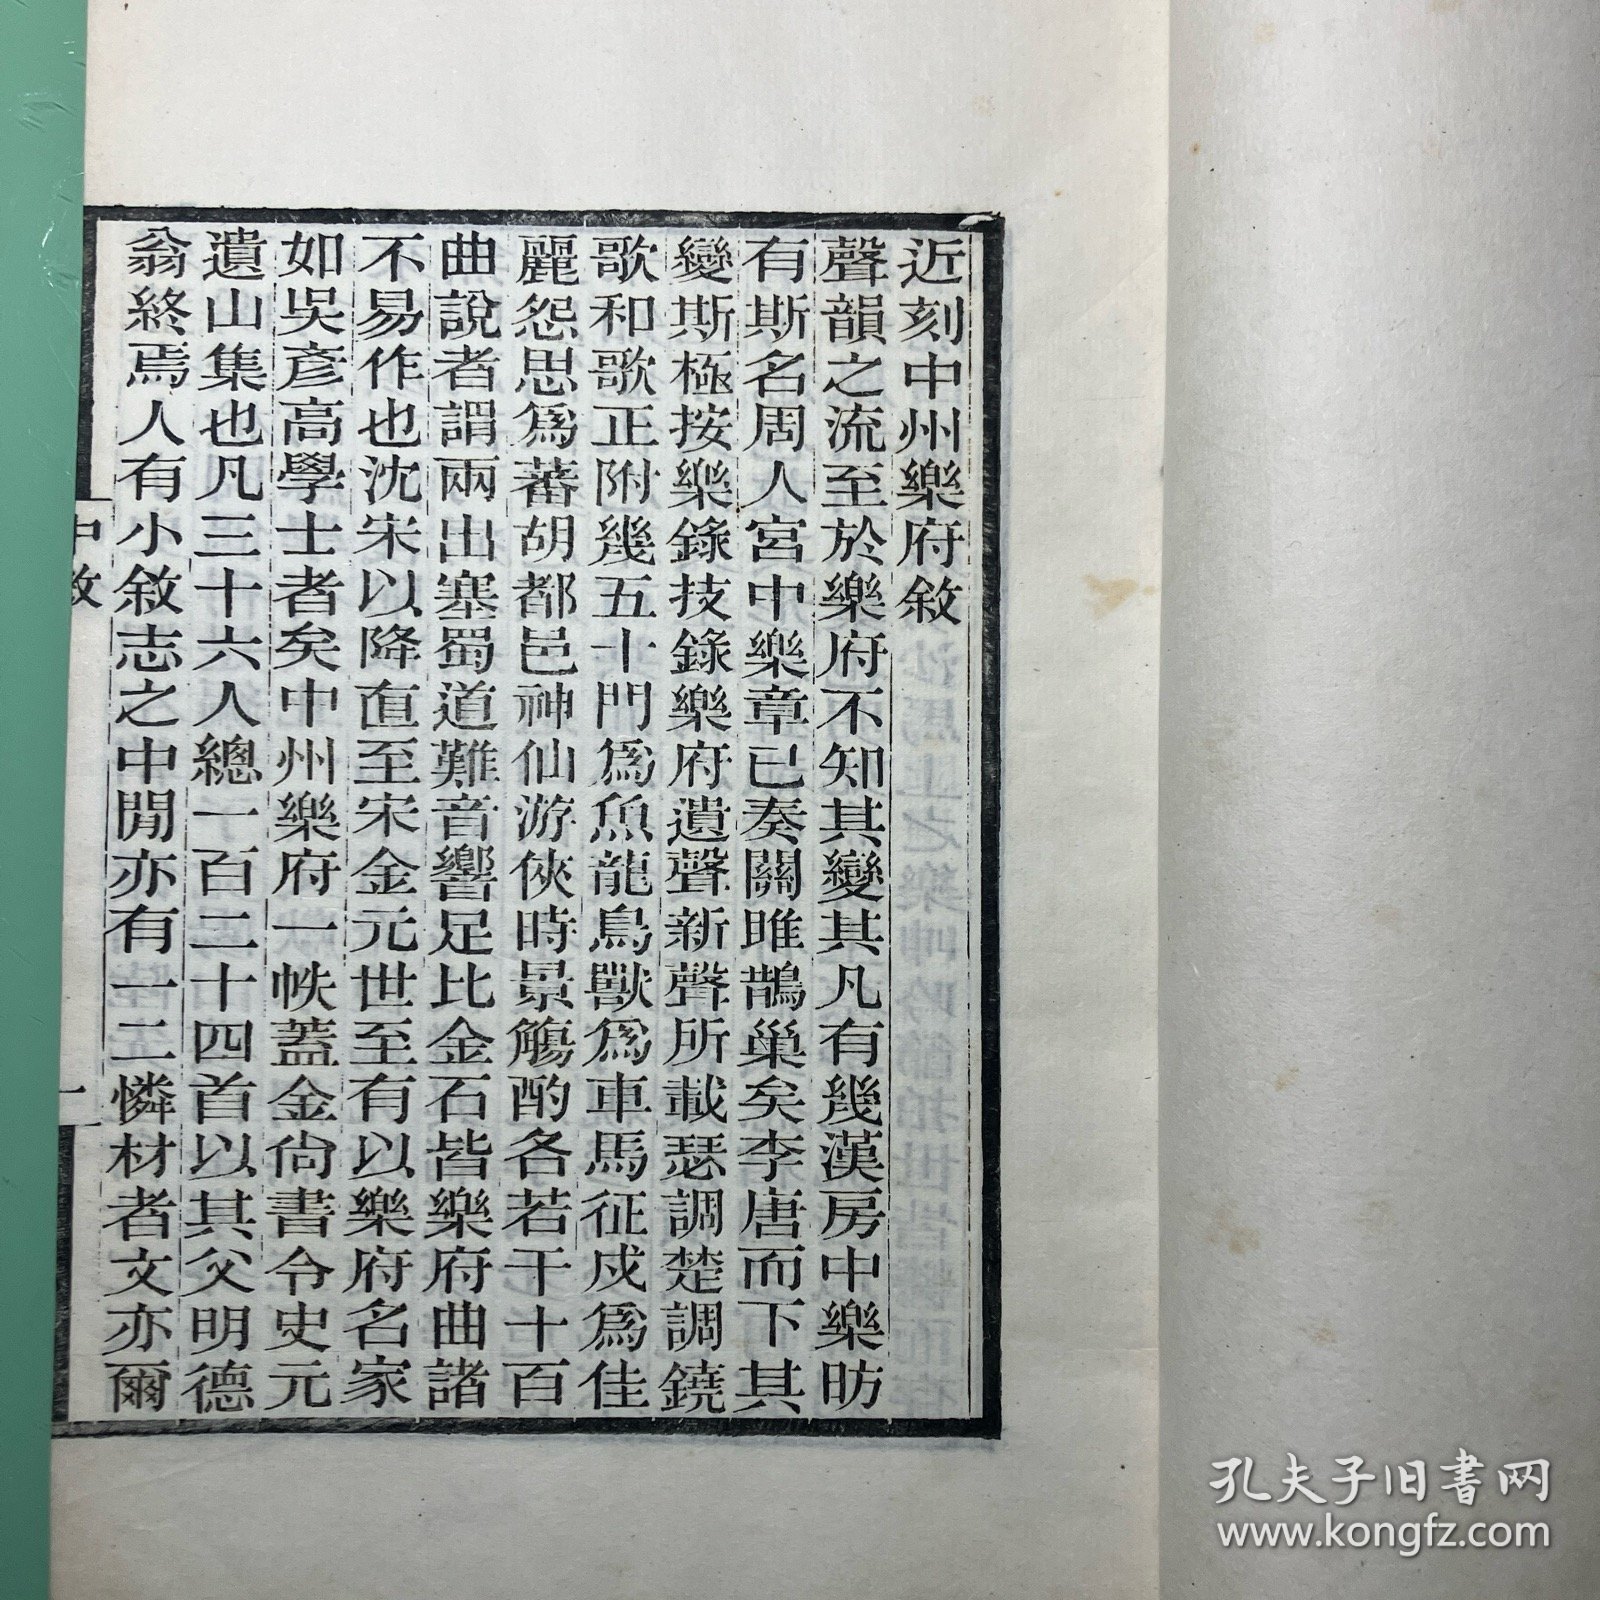 近刻中州樂府敘
聲韻之流至於樂府不知其變其凡有幾漢房中樂昉
有斯名周人宮中樂章已奏關雎鵲巢矣李唐而下其
變斯極按樂錄技錄樂府遺聲新聲所載瑟調楚調鐃
歌和歌正附幾五十門為魚龍鳥獸為車馬征戍為佳
麗怨思為蕃胡都邑神仙游俠時景觴酌各若干十百
曲說者謂兩出塞蜀道難音響足比金石皆樂府曲諸
不易作也沈宋以降直至宋金元世至有以樂府名家
如吳彥高學士者矣中州樂府一帙蓋金尚書令史元
遺山集也凡三十六人總一百二十四首以其父明德
翁終焉人有小敘志之中間亦有一二憐材者文亦爾
中敘
一
孔夫子旧书网
www.kongfz.com